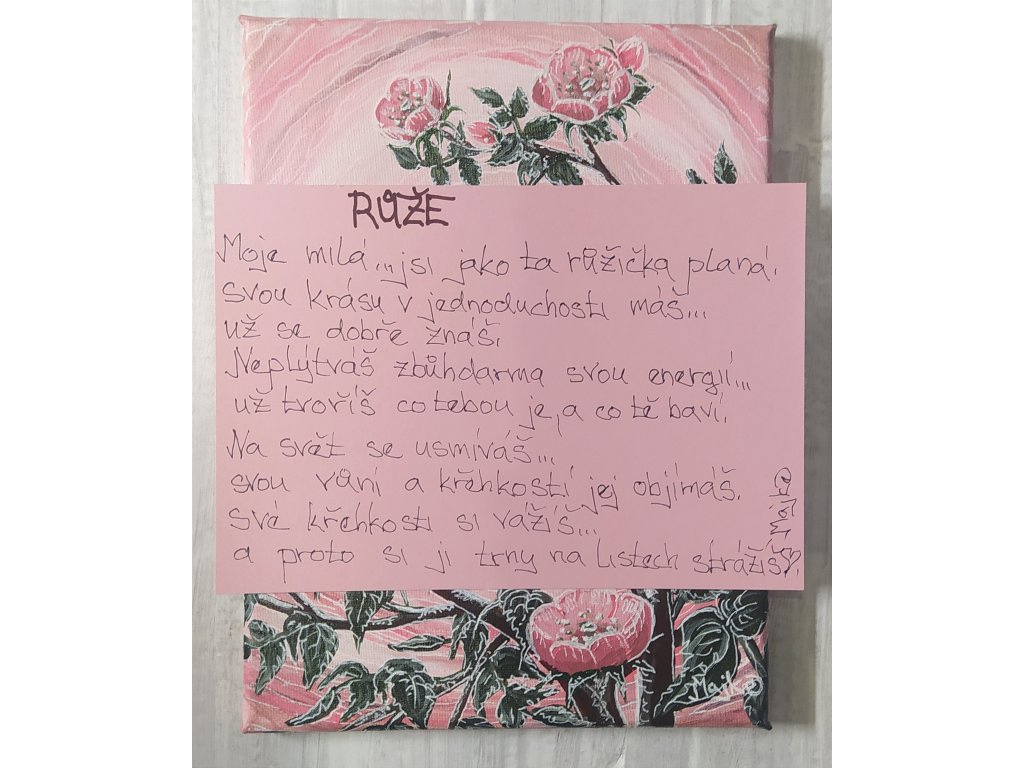 RŮŽE
Moje milá...jsi jako ta růžička planá.
svou krásu v jednoduchosti máš...
už se dobře znáš.
Neplýtváš zbůhdarma svou energií...
už tvoříš co tebou je, a co tě baví.
Na svět se usmíváš...
svou vůní a křehkostí jej objímáš.
své křehkosti si vážíš...
a proto si ji trny na listech strážíš♡.
Majka
Majka